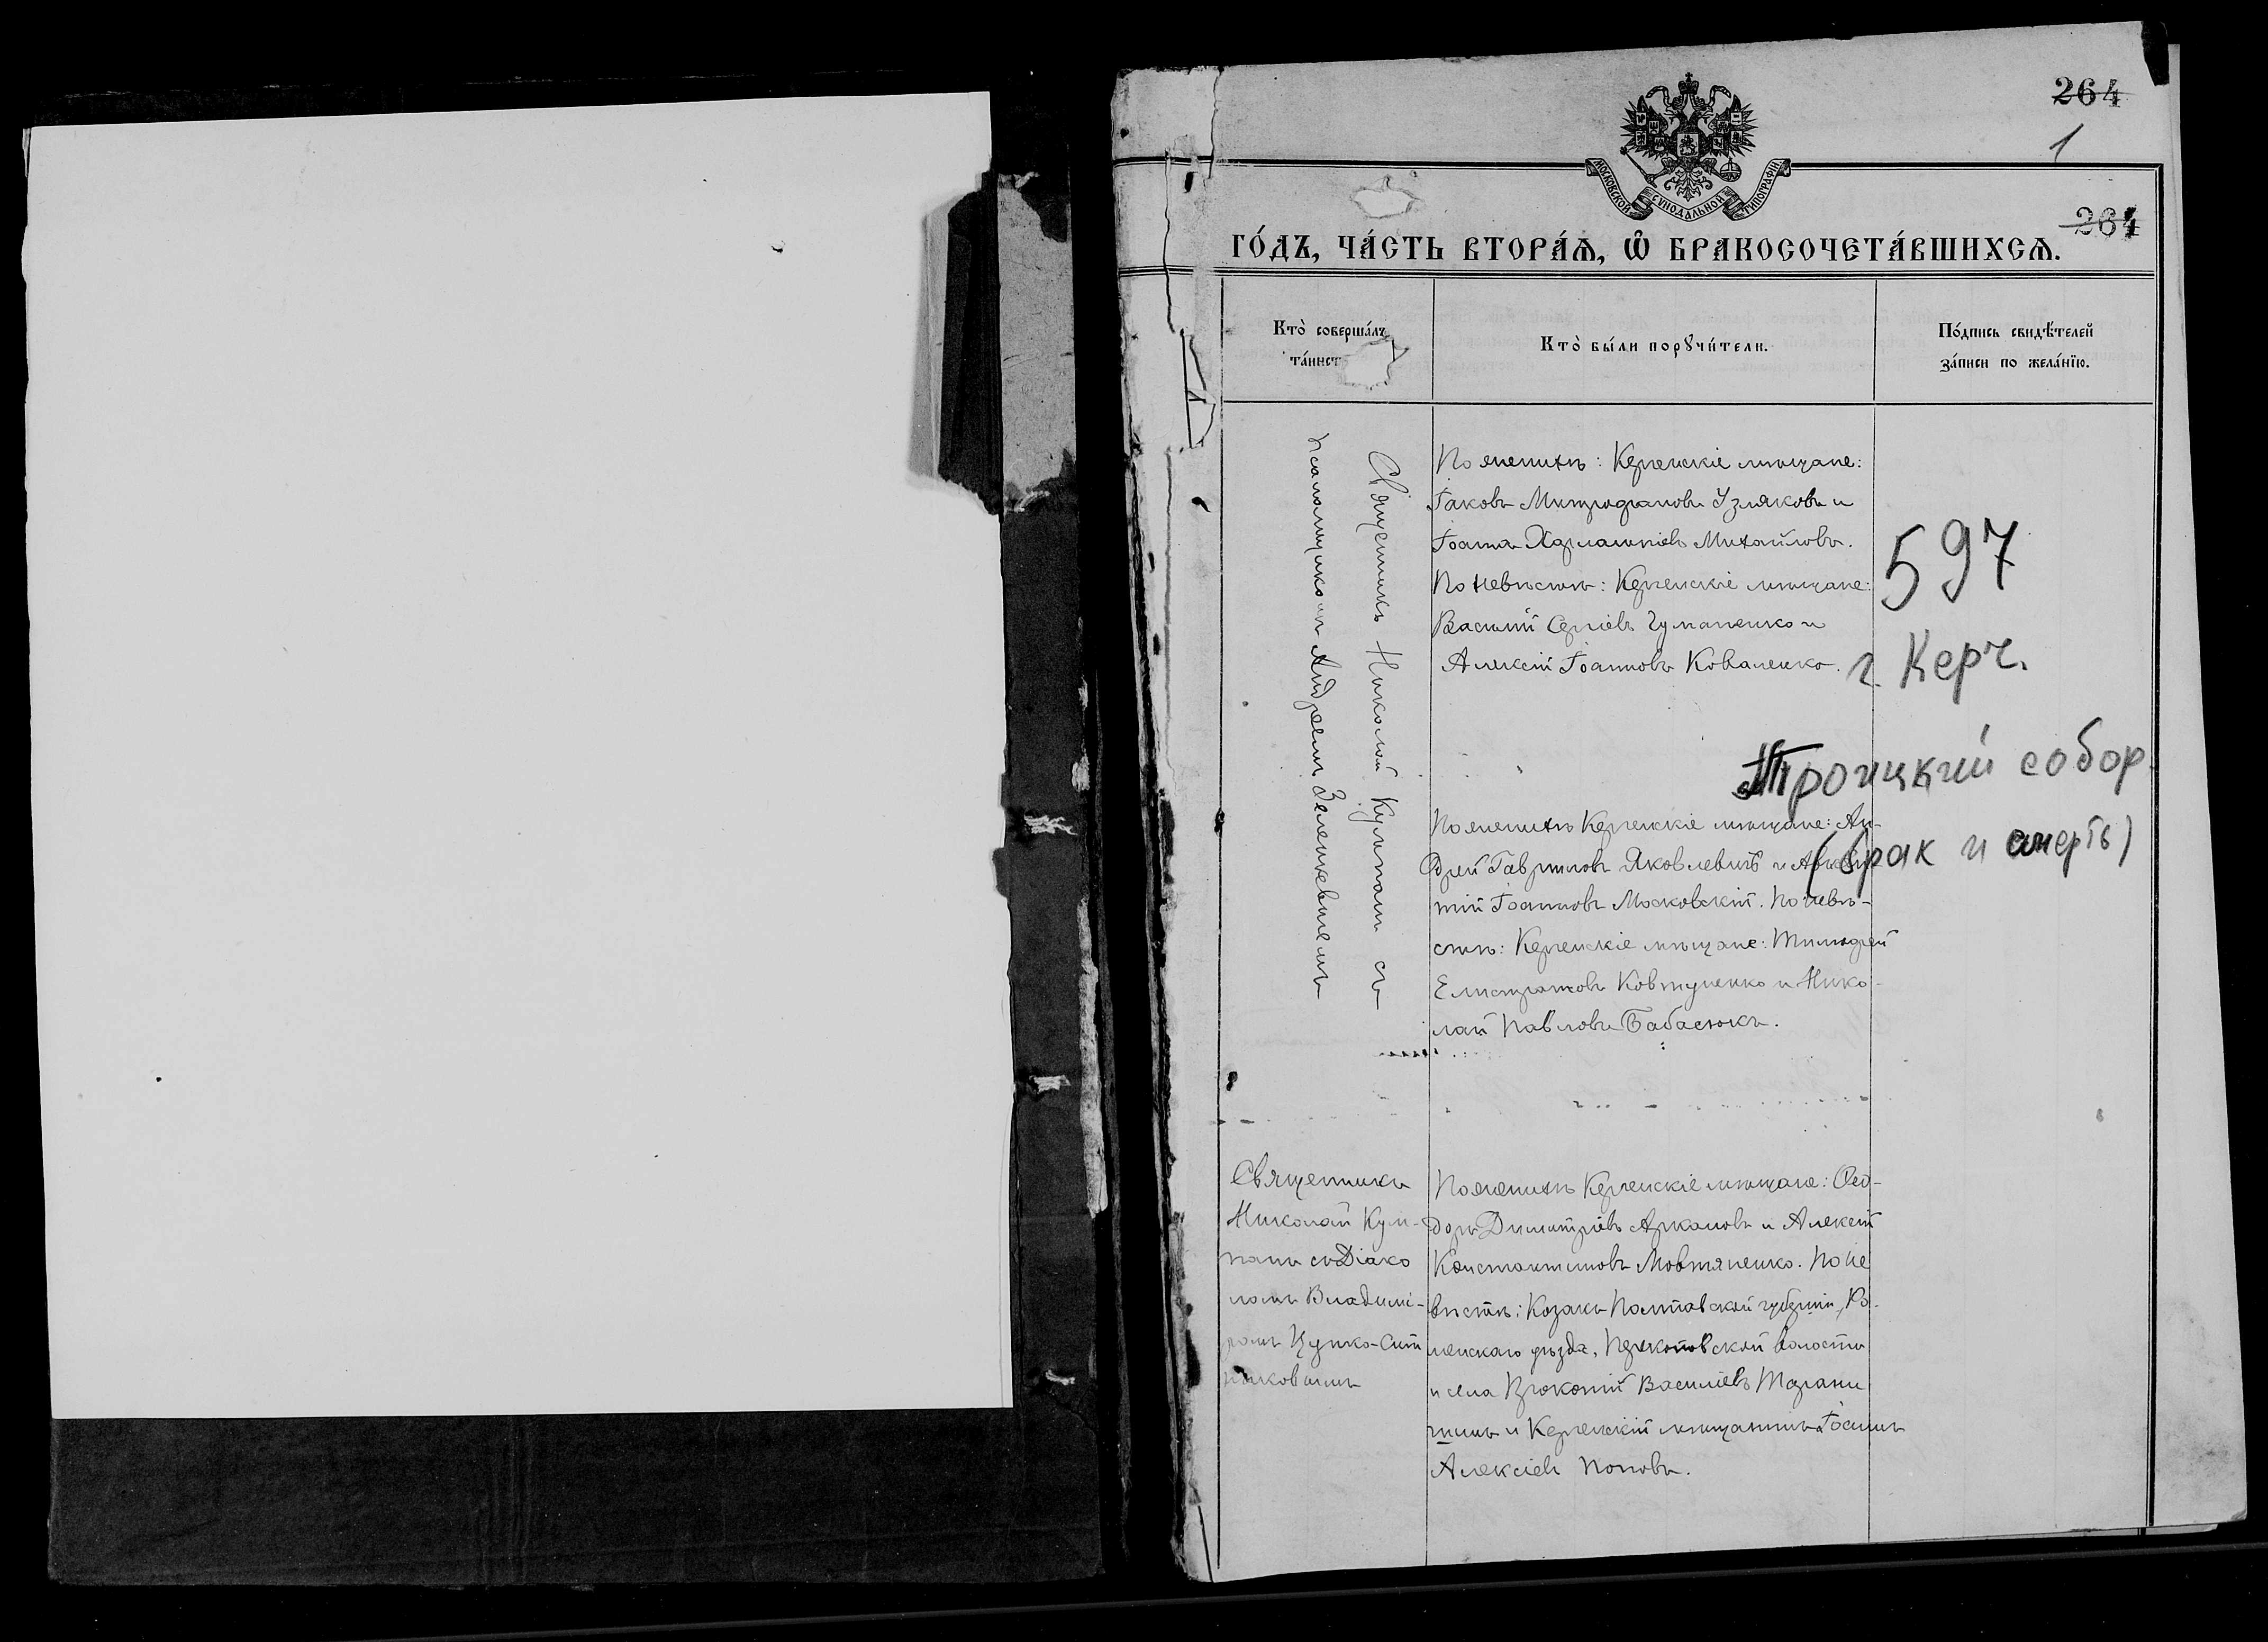 264
1
МОСКОВСКОЙ СѴНОДАЛЬНОЙ ТИПОГРАФІИ.
264
ГО́ДЪ, ЧА́СТЬ ВТОРА́Ѧ, Ѽ БРАКОСОЧЕТА́ВШИХСѦ.
Кто̀ соверша́лъ
та́инст
Кто̀ бы́ли порꙋчи́тели.
По́дпись свидѣ́телей
за́писи по жела́нїю.
Священникъ Николай Кулпати съ
псаломщикомъ Андреемъ Зеленкевичемъ
По женихѣ: Керченскіе мѣщане:
Іаковъ Митрофановъ Узляковъ и
Іоаннъ Харлампіевъ Михайловъ.
По невѣстѣ: Керченскіе мѣщане:
Василій Сергіевъ Чумаченко и
Алексій Іоанновъ Коваленко.
597
г. Керч.
Троицкий собор
(брак и смерть)
По женихѣ Керченскіе мѣщане: Ан-
дрей Гавриловъ Яковлевичъ и
тій Іоанновъ Московскій. По невѣ-
стѣ: Керченскіе мѣщане: Тимофей
Елистратовъ Ковтуненко и Нико-
лай Павловъ Бабасюкъ.
Священникъ
Николай Кул-
пати съ Діако
номъ Владимі-
ромъ Цупко-Сит
никовымъ
По женихѣ Керченскіе мѣщане: Фео-
доръ Димитріевъ Аркановъ и Алексій
Константиновъ Мовтяненко. По не
вѣстѣ: Козакъ Полтавской губерніи, Ро-
менскаго уѣзда, Перекоповской волости
и села Прокопій Василіевъ Таран
и Керченскій мѣщанинъ Іоаннъ
Алексіевъ Поповъ.